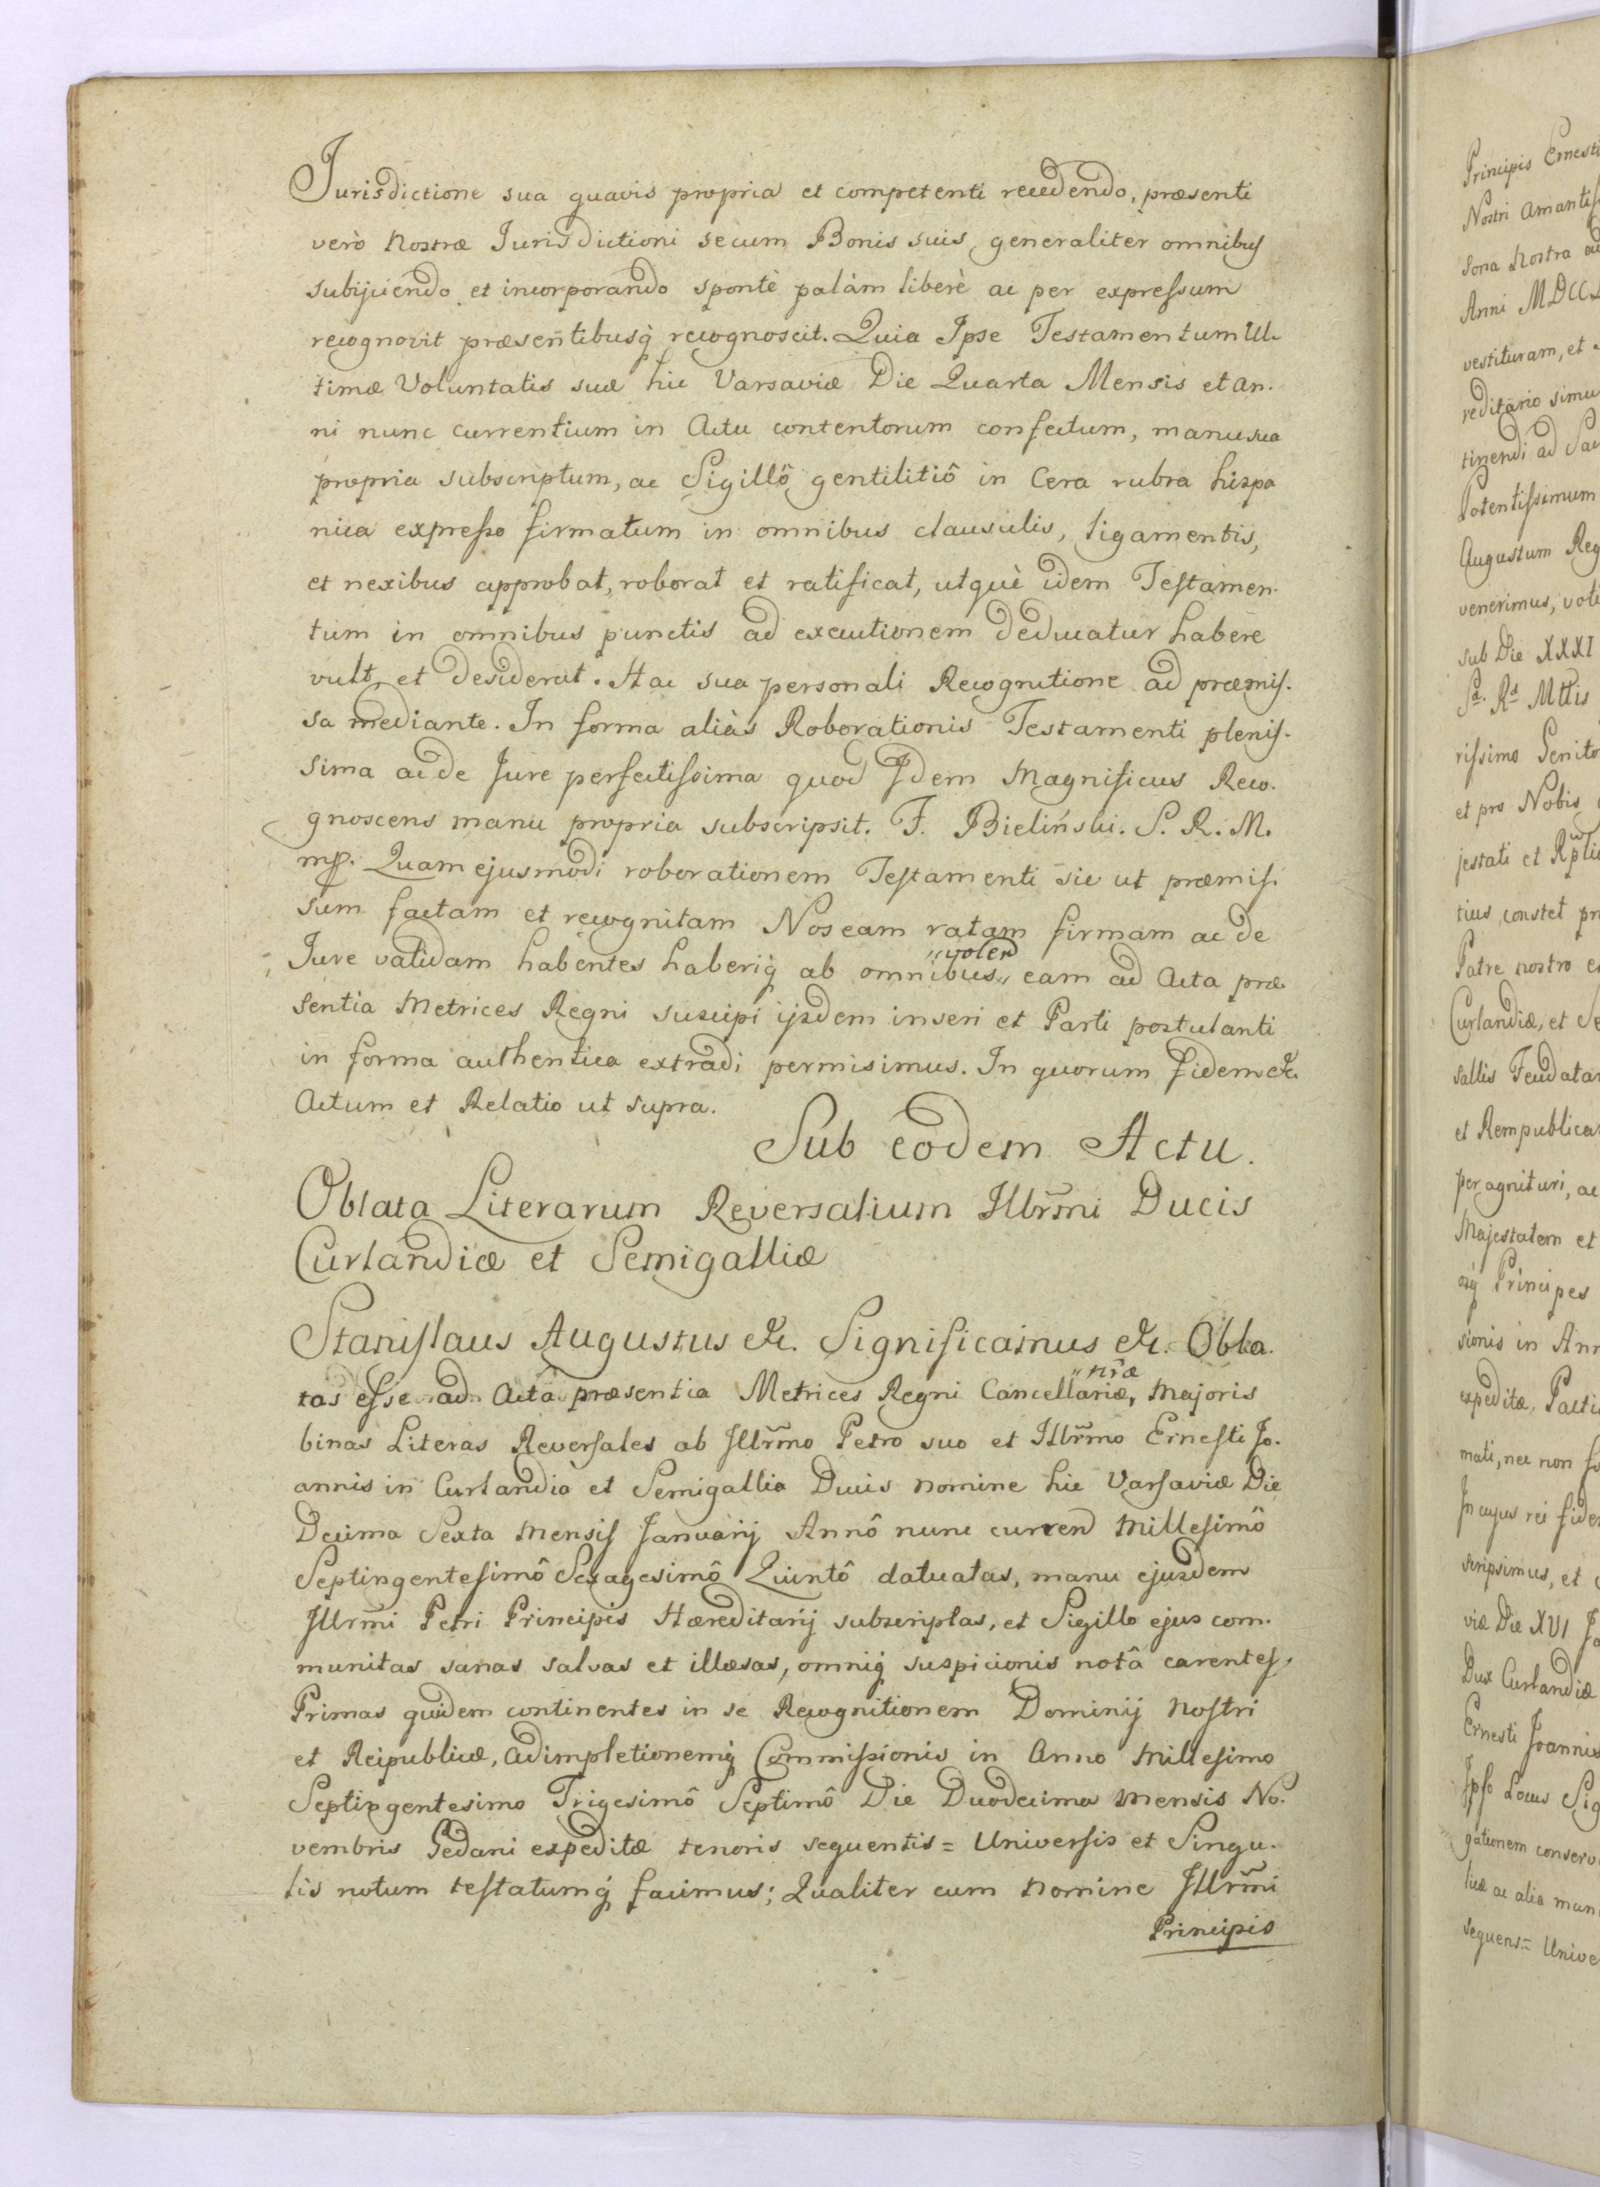 Jurisdictione sua quavis propria et competenti recedendo, præsenti
verò Nostræ Jurisdictioni secum Bonis suis generaliter omnibus
subijciendo et incorporando spontè palàm liberè ac per expressum
recognovit præsentibusq́ recognoscit. Quia Ipse Testamentum Ul-
timæ Voluntatis suæ hic Varsaviæ Die Quarta Mensis et An-
ni nunc currentium in Actu contentorum confectum, manu sua
propria subscriptum, ac Sigillô gentilitiô in Cera rubra hispa
nica expresso firmatum in omnibus clausulis, ligamentis,
et nexibus approbat, roborat et ratificat, utquè idem Testamen-
tum in omnibus punctis ad executionem deducatur habere
vult et desiderat. Hac sua personali Recognitione ad præmis-
sa mediante. In forma aliàs Roborationis Testamenti plenis-
sima ac de Jure perfectissima quod Idem Magnificus Reco-
gnoscens manu propria subscripsit. F. Bieliński. S. R. M.
mp. Quam ejusmodi roborationem Testamenti sic ut præmis-
sum factam et recognitam Nos eam ratam firmam ac de
Jure validam habentes haberiq́ ab omnibus „volen„ eam ad Acta præ
sentia Metrices Regni suscipi ijsdem inseri et Parti postulanti
in forma authentica extradi permisimus. In quorum fidem &c.
Actum et Relatio ut supra.
Sub eodem Actu.
Oblata Literarum Reversalium Illr̃mi Ducis
Curlandiæ et Semigalliæ
Stanislaus Augustus &c. Significamus &c. Obla-
tas esse ad Acta præsentia Metrices Regni Cancellariæ „nr̃æ, Majoris
binas Literas Reversales ab Illr̃mo Petro suo et Illr̃mo Ernesti Jo-
annis in Curlandia et Semigallia Ducis nomine hic Varsaviæ Die
Decima Sexta Mensis Januarij Annô nunc curren Millesimô
Septingentesimô Sexagesimô Quintô datuatas, manu ejusdem
Illr̃mi Petri Principis Hæreditarij subscriptas, et Sigillo ejus com-
munitas sanas salvas et illæsas, omniq́ suspicionis notâ carentes,
Primas quidem continentes in se Recognitionem Dominij Nostri
et Reipublicæ, Adimpletionemq́ Commissionis in Anno Millesimo
Septingentesimo Trigesimô Septimô Die Duodecima Mensis No-
vembris Gedani expeditæ tenoris sequentis = Universis et Singu-
lis notum testatumq́ facimus; Qualiter cum nomine Illr̃mi
Principis
Principis Ernesti
Nostri Amantis
sona Nostra ad
Anni MDCC
vestituram, et
reditario simu
tinendi ad Sac
Potentissimum
Augustum Reg
venerimus, vot
sub Die XXXI
Sæ. Ræ Mttis
rissimo Genito
et pro Nobis
jestati et
tius constet pr
Patre nostro
Curlandiæ, et Se
sallis Feudatar
et Rempublicam
per agnituri, ac
Majestatem et
Principes
sionis in Ann
expeditæ, Pacti
mati, nec non
In cujus rei fidem
scripsimus, et
viæ Die XVI Ja
Dux Curlandiæ
Ernesti Joannis
Locus Sig
gationem conserv
ac alia mun
sequens = Unive